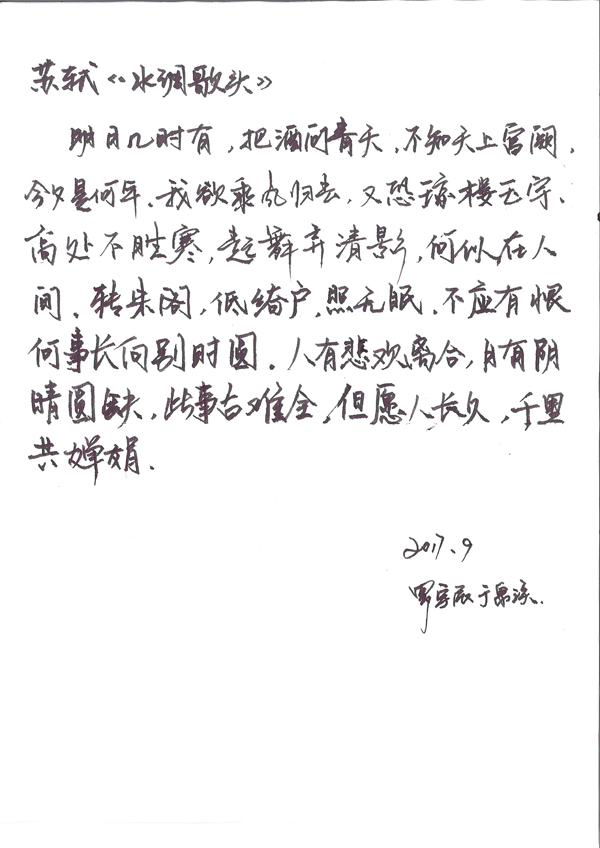 苏轼《水调歌头》
明月几时有，把酒问青天，不知天上宫阙，
今夕是何年，我欲乘风归去，又恐琼楼玉宇，
高处不胜寒，起舞弄清影，何似在人
间，转朱阁，低绮户，照无眠，不应有恨
何事长向别时圆，人有悲欢离合，月有阴
晴圆缺，此事古难全，但愿人长久，千里
共婵娟．
2017、9
于